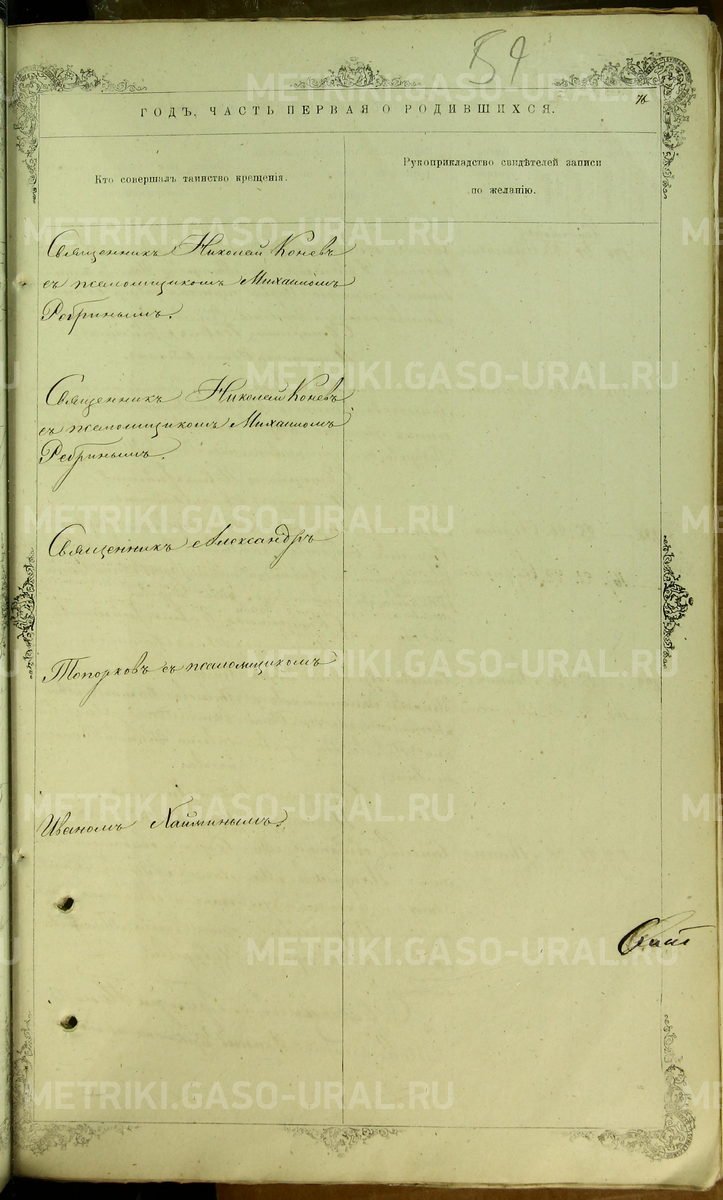 54
76
ГОДЪ, ЧАСТЬ ПЕРВАЯ О РОДИВШИХСЯ.
Кто совершалъ таинство крещенія.
Рукоприкладство свидѣтелей записи
по желанію.
Священникъ Николай Коневъ
съ псаломщикомъ Михаиломъ
Ребринымъ.
Священникъ Николай Коневъ
съ псаломщикомъ Михаиломъ
Ребринымъ.
Священникъ Александръ
Топорковъ съ псаломщикомъ
Иваномъ Хайминымъ.
METRIKI.GASO-URAL.RU